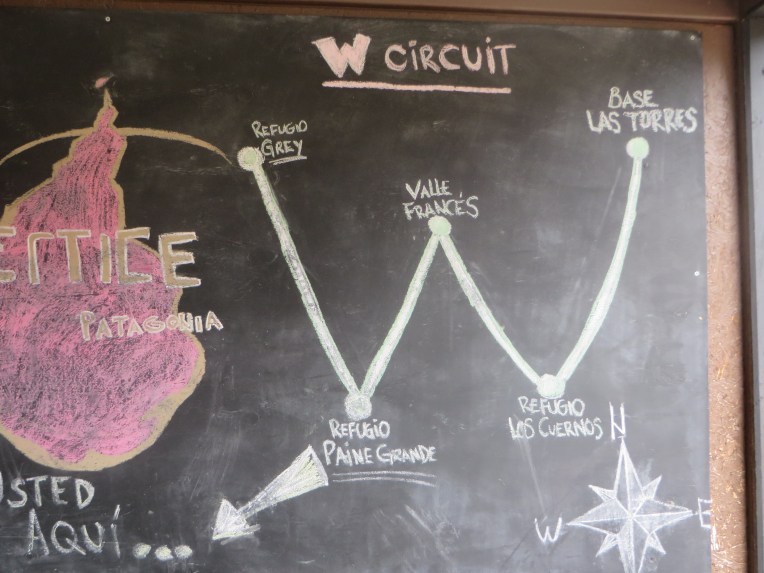 W CIRCUIT
REFUGIO
GREY
BASE
LAS TORRES
VALLE
FRANCÉS
PATAGONIA
REFUGIO
PAINE GRANDE
REFUGIO
LOS CUERNOS
N
W
E
USTED
AQUÍ ...